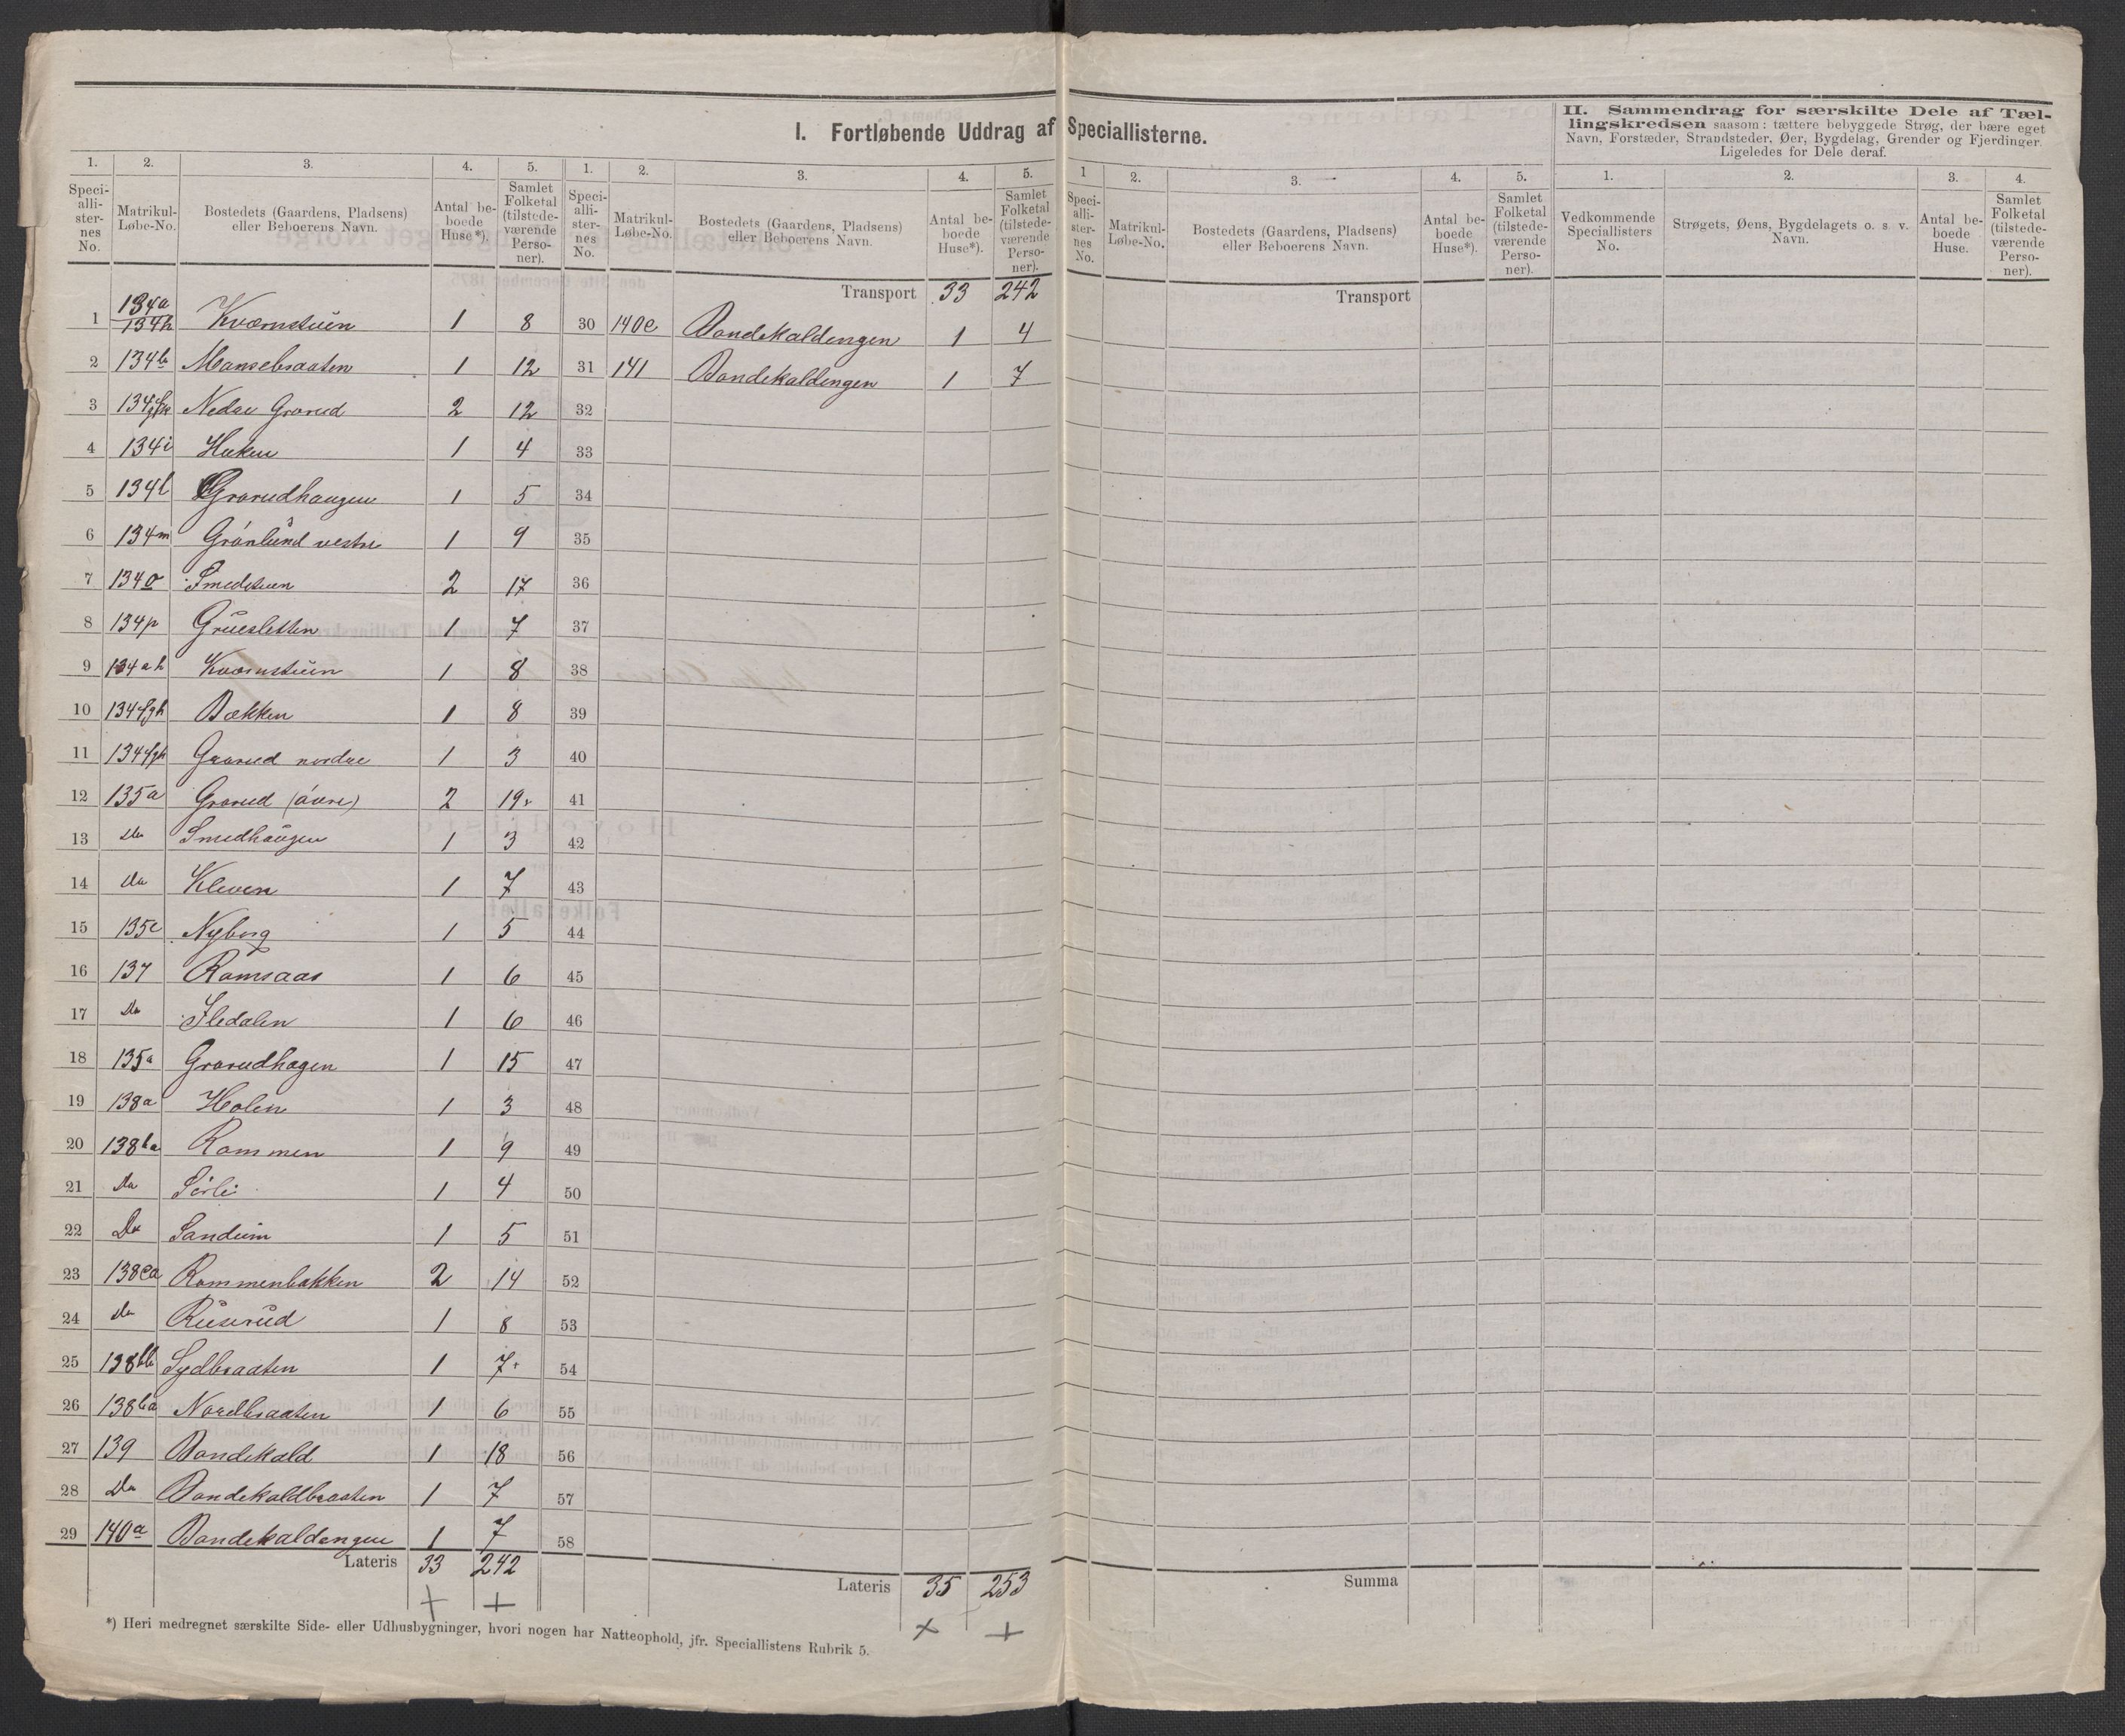 I. Fortløbende Uddrag af Speciallisterne.
II. Sammendrag for særskilte Dele af Tæl-
lingskredsen saasom: tættere bebyggede Strøg, der bære eget
Navn, Forstæder, Strandsteder, Øer, Bygdelag, Grender og Fjerdinger.
Ligeledes for Dele deraf.
1. 2. 3. 4. 5. 1. 2. 3. 4. 5. 1 2. 3. 4. 5. 1. 2. 3. 4.
Speci-alli-ster-nes No. Matrikul-Løbe-No. Bostedets (Gaardens, Pladsens) eller Beboerens Navn. Antal be-boede Huse*). Samlet Folketal (tilstede-værende Perso-ner).
Speci-alli-ster-nes No. Matrikul-Løbe-No. Bostedets (Gaardens, Pladsens) eller Beboerens Navn. Antal be-boede Huse*). Samlet Folketal (tilstede-værende Perso-ner).
Speci-alli-ster-nes No. Matrikul-Løbe-No. Bostedets (Gaardens, Pladsens) eller Beboerens Navn. Antal be-boede Huse*). Samlet Folketal (tilstede-værende Perso-ner).
Vedkommende Speciallisters No. Strøgets, Øens, Bygdelagets o. s. v. Navn. Antal be-boede Huse. Samlet Folketal (tilstede-værende Perso-ner).
Transport 33 242 Transport
1 134a 134h Kværnstuen 1 8 30 140c Bondekaldengen 1 4
2 134b Manselsraaten 1 12 31 141 Bondekaldengen 1 7
3 134fgh Nedre Grorud 2 12 32
4 134i Haken 1 4 33
5 134l Grorudhaugen 1 5 34
6 134m Grönlund vestre 1 9 35
7 134o Smedstuen 2 17 36
8 134p Gruesletten 1 7 37
9 134ah Kværnstuen 1 8 38
10 134fgh Bækken 1 8 39
11 134fgh Grorud nordre 1 3 40
12 135a Grorud (övre) 2 19 41
13 Do Smedhaugen 1 3 42
14 Do Kleven 1 7 43
15 135c Nyborg 1 5 44
16 137 Romsaas 1 6 45
17 Do Sledalen 1 6 46
18 135a Grorudhagen 1 15 47
19 138a Holen 1 3 48
20 138ba Rommen 1 9 49
21 Do Sörli 1 4 50
22 Do Sandum 1 5 51
23 138ca Rommenbakken 2 14 52
24 Do Rüserud 1 8 53
25 138bb Sydbraaten 1 7 54
26 138ba Nordbraaten 1 6 55
27 139 Bondekald 1 18 56
28 Do Bondekaldbraaten 1 7 57
29 140a Bondekaldengen 1 7 58
Lateris 33 242 Lateris 35 253 Summa
*) Heri medregnet særskilte Side- eller Udhusbygninger, hvori nogen har Natteophold, jfr. Speciallistens Rubrik 5.